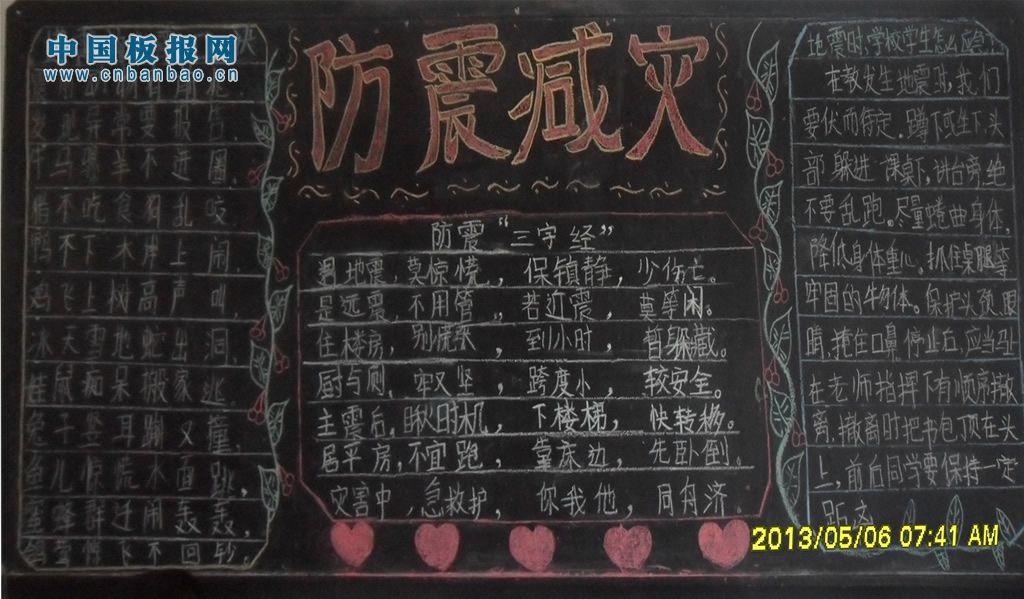 中国板报网
www.cnbanbao.cn
防震减灾
牛马骡羊不进圈,
猪不吃食狗乱咬
鸭不下水岸上闹,
鸡飞上树高声叫
冰天雪地蛇出洞,
痴呆搬家逃
兔子竖耳蹦又撞,
鱼儿惊慌水面跳,
蜜蜂群迁闹轰轰,
防震“三字经”
遇地震,莫惊慌,保镇静,少伤亡。
是远震,不用管,若近震,莫等闲。
住楼房,别慌张,到小时,暂躲藏。
厨与厕,牢又坚,跨度小,较安全。
主震后,瞅时机,下楼梯,快转移。
居平房,不宜跑,靠床边,先卧倒。
灾害中,急救护,你我他,同舟济。
地震时,学校学生怎么应急?
在教发生地震时,我们
要伏而待定,蹲下或坐下,头
部躲进课桌下,讲台旁,绝
不要乱跑。尽量蜷曲身体,
降低身体重心。抓住桌腿等
牢固的物体。保护头颈、眼
睛,掩住口鼻,停止后,应当
在老师指挥下有顺序撤
离,撤离时把书包顶在头
上,前后同学要保持一定
距离
2013/05/06 07:41 AM